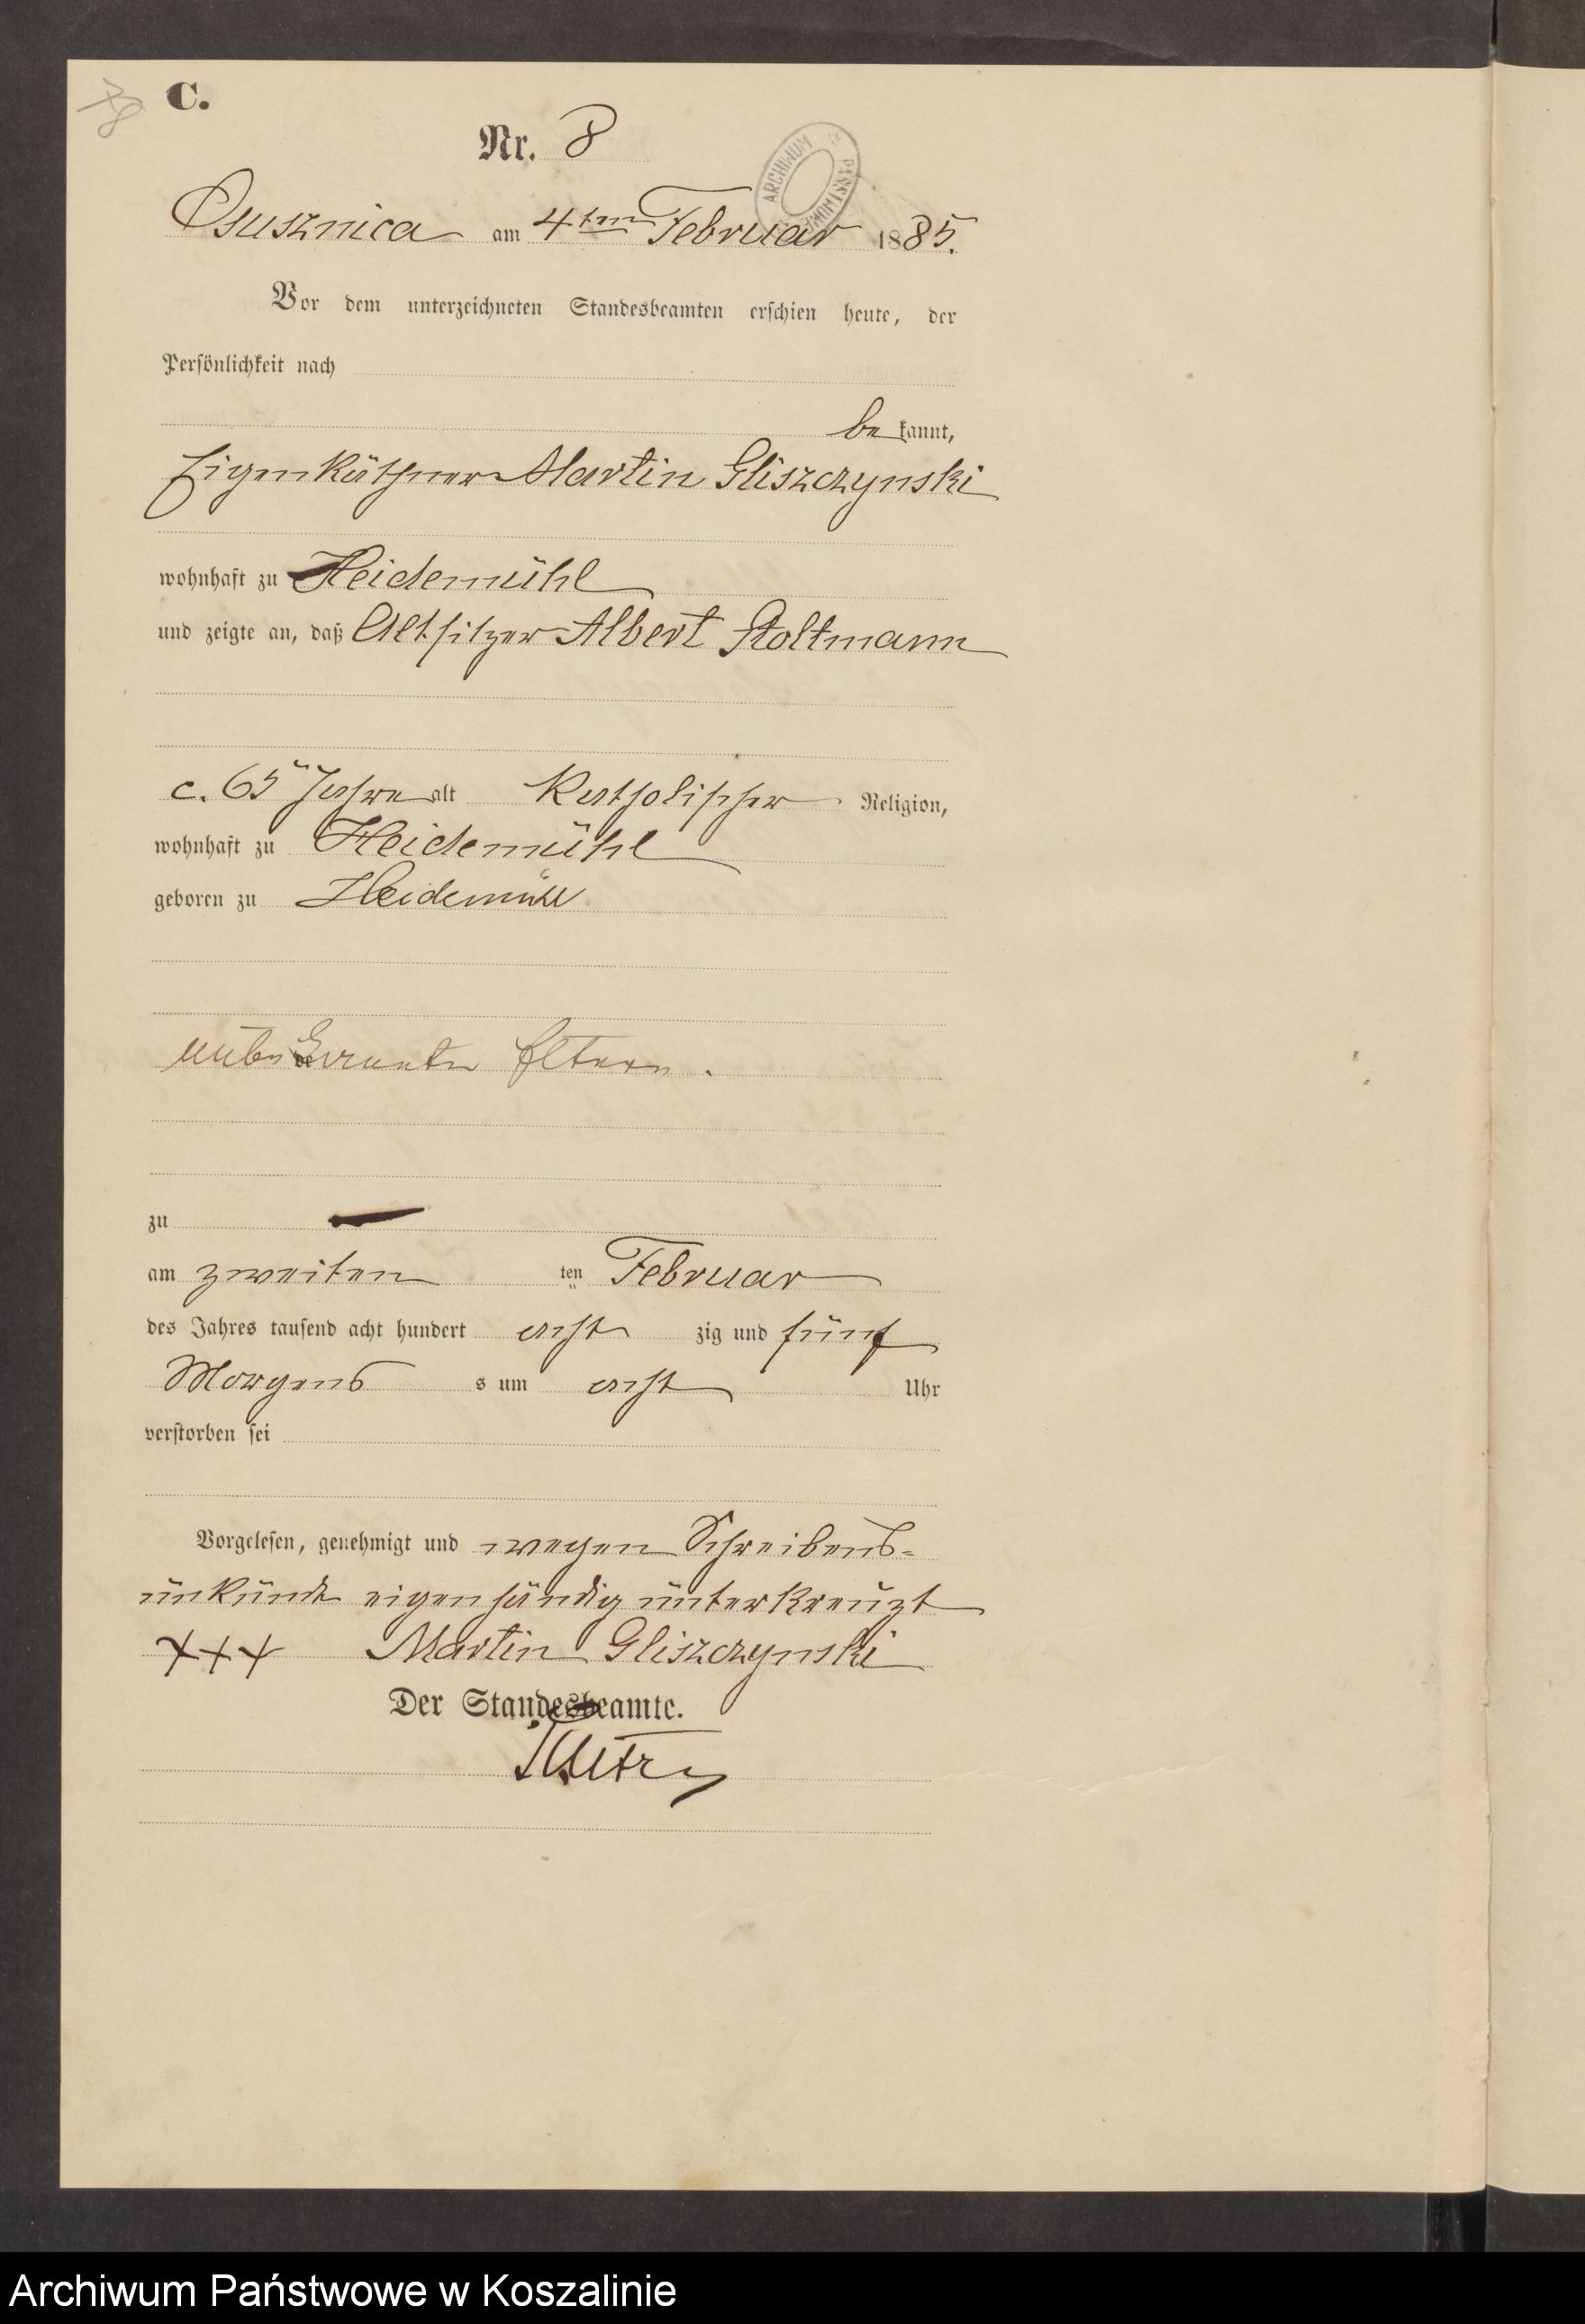 C.
Nr. 8
ARCHIWUM PAŃSTWOWE
Osusznica am 4ten Februar 1885.
Vor dem unterzeichneten Standesbeamten erschien heute, der
Persönlichkeit nach
be kannt,
Eigenkäthner Martin Gliszczynski
wohnhaft zu Heidemühl
und zeigte an, daß Altsitzer Albert Stoltmann
c. 65 Jahre alt Katholischer Religion,
wohnhaft zu Heidemühl
geboren zu Heidemühl
Eltern.
zu
am zweiten ten Februar
des Jahres tausend acht hundert acht zig und fünf
Morgens s um acht Uhr
verstorben sei
Vorgelesen, genehmigt und wegen Schreibens-
unkunde eigenhändig unterkreuzt
+++ Martin Gliszczynski
Der Standesbeamte.
Archiwum Państwowe w Koszalinie